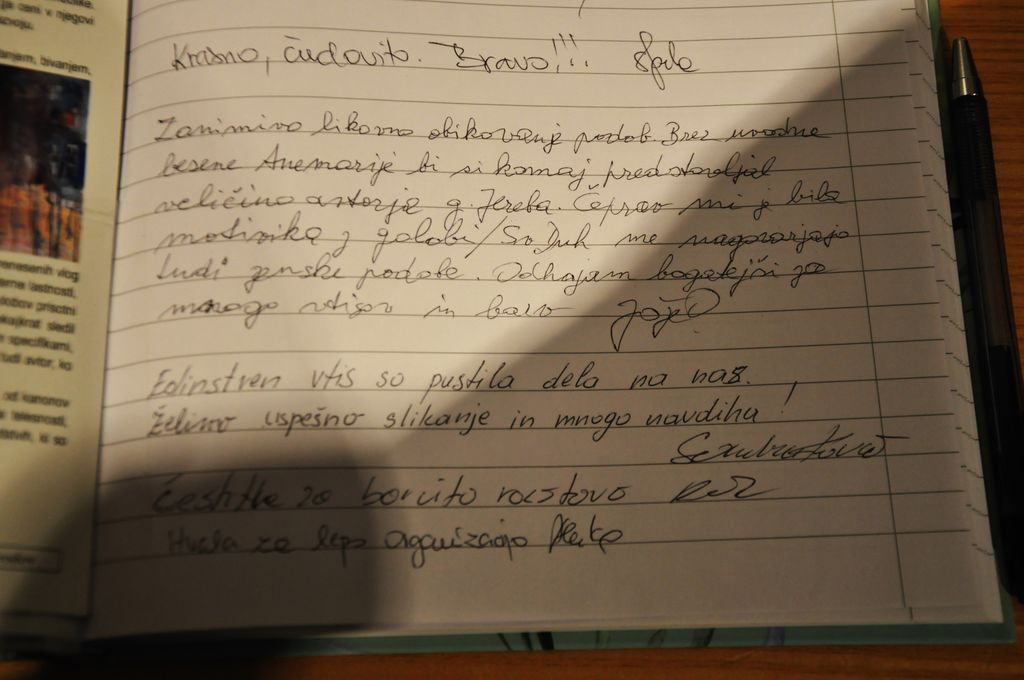 ja ceni v njegovi
razvoju.
anjem, bivanjem,
renesenih vlog
erne lastnosti,
kobov prisotni
okajkrat sledil
n specifikami,
tudi avtor, ko
od kanonov
a telesnosti,
Krasno, čudovito. Bravo!!! Špela
Zanimivo likovno oblikovanje podob. Brez uvodne
besene Anemarije bi si komaj predstavljal
veličino avtorja g. Jereba. Čeprav mi je bila
motivika z golobi/Sv. Duh me nagovarjajo
tudi ženske podobe. Odhajam bogatejši za
mnogo vtisov in barv Jože
Edinstven vtis so pustila dela na nas.
Želimo uspešno slikanje in mnogo navdiha!
Čestitke za barvito razstavo
Hvala za lepo organizacijo